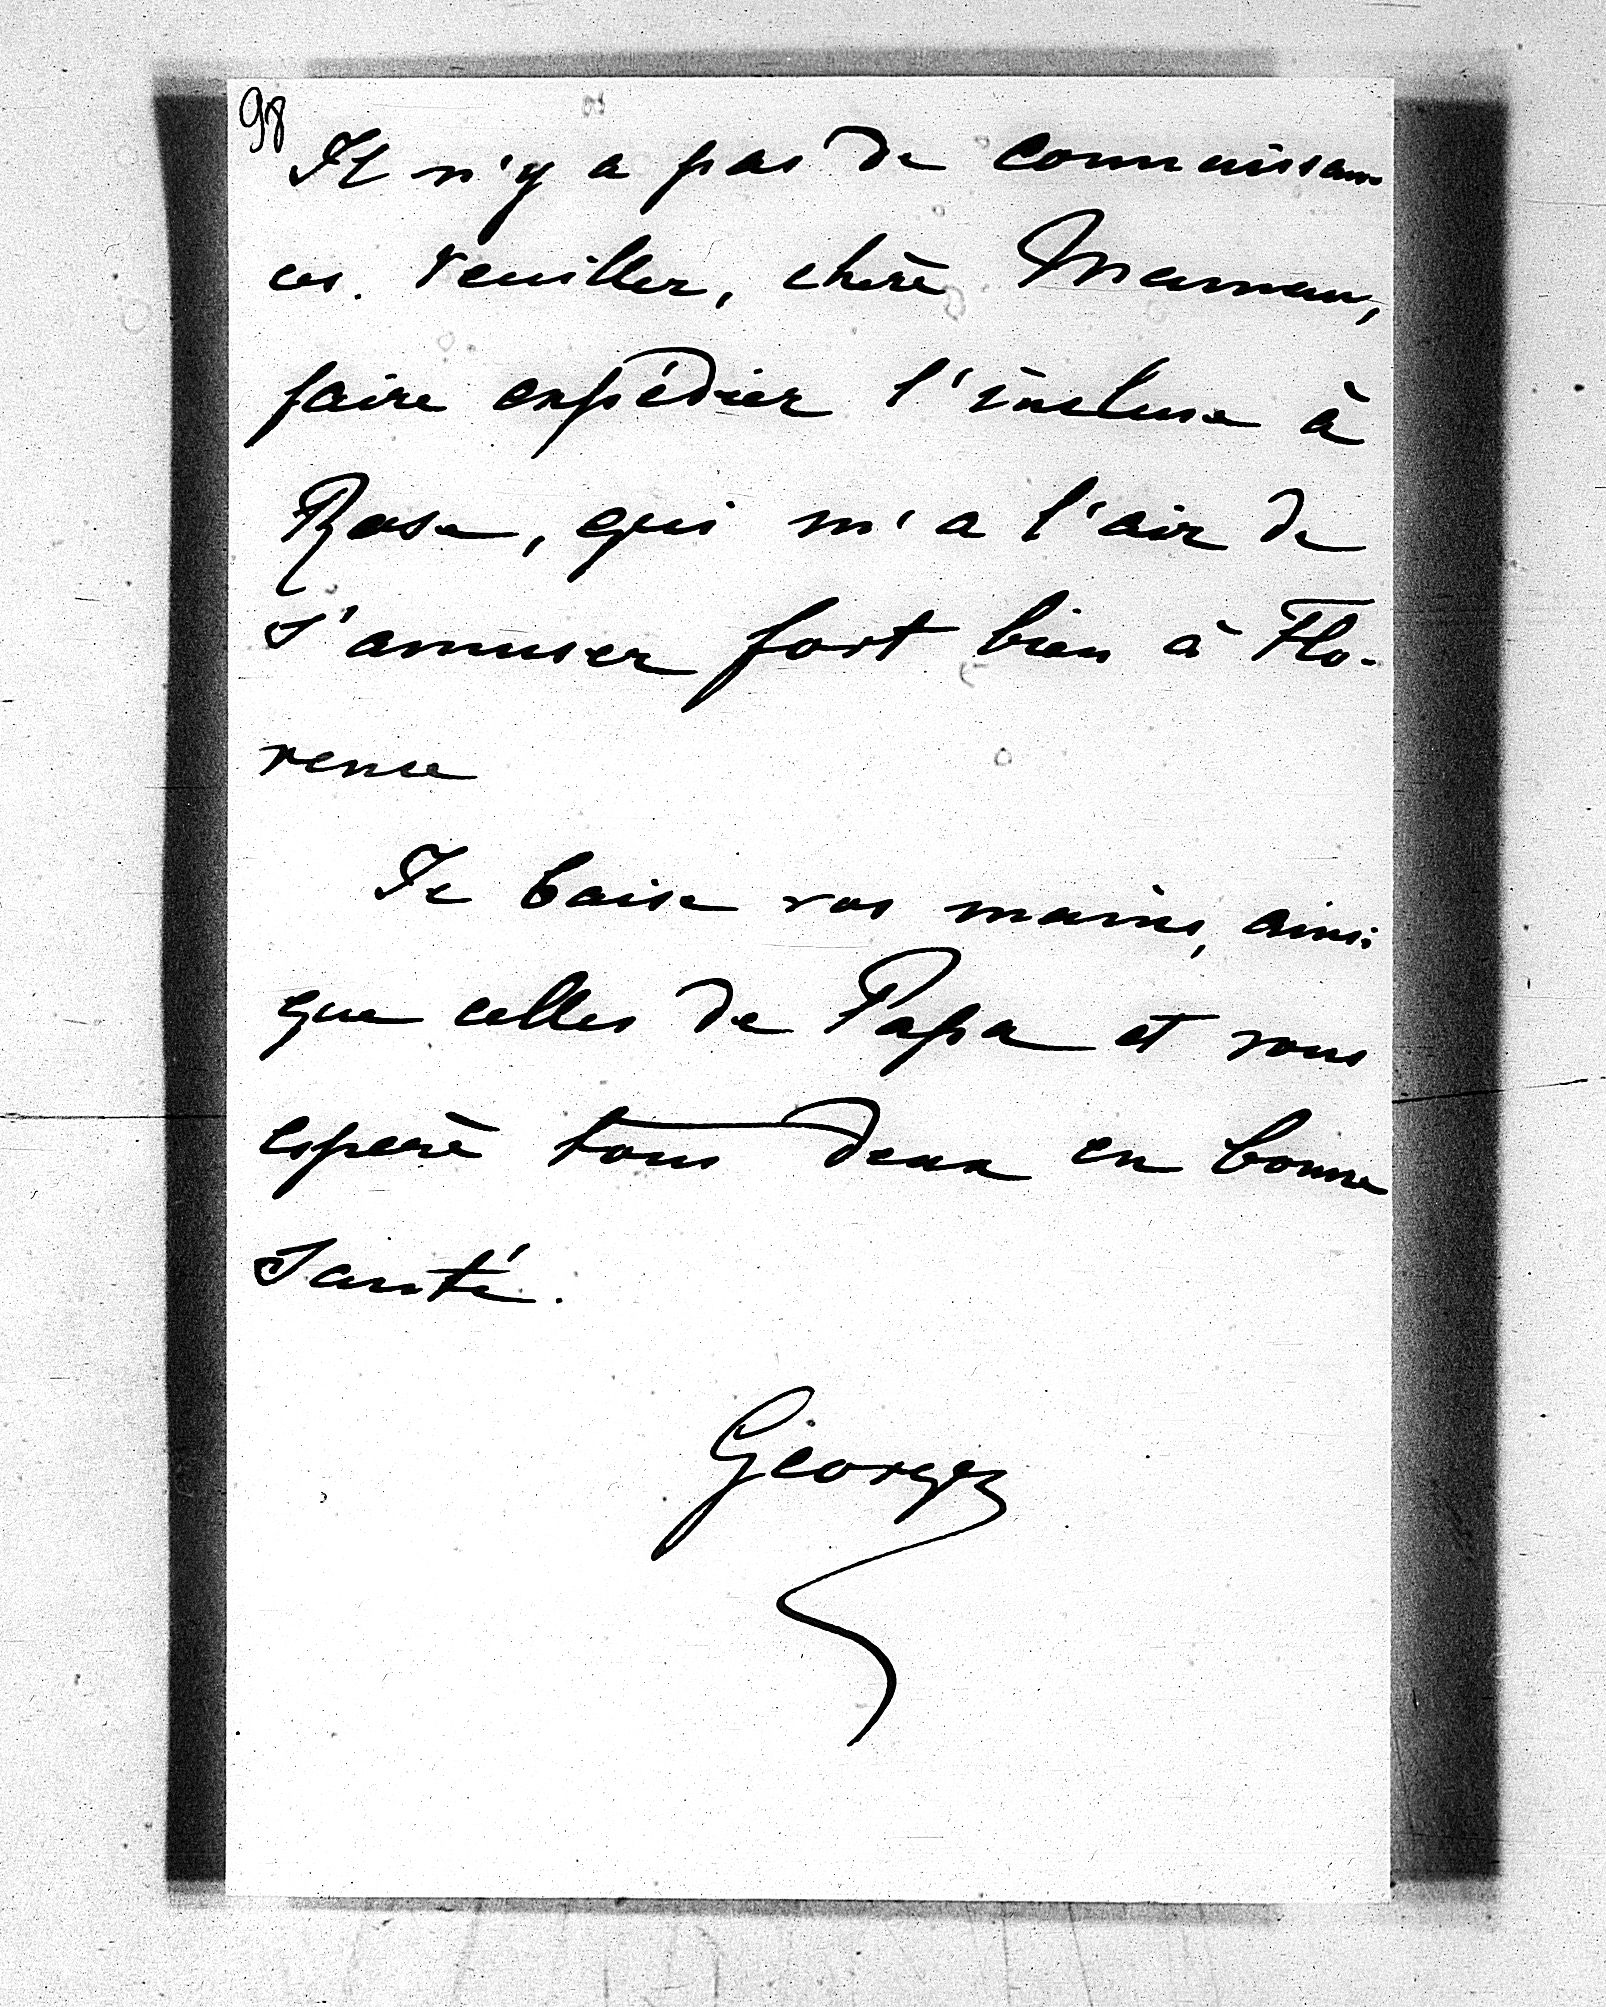 98
Il n'y a pas de connaissan
ces. Veuillez, chère Maman,
faire expédier l'incluse à
Rose, qui m'a l'air de
s'amuser fort bien à Flo-
rence
Je baise vos mains, ainsi
que celles de Papa et vous
espère tous deux en bonne
santé.
Georges